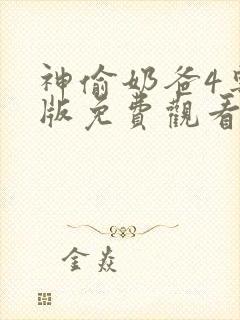 神偷奶爸4粵
版免費觀看
金焱